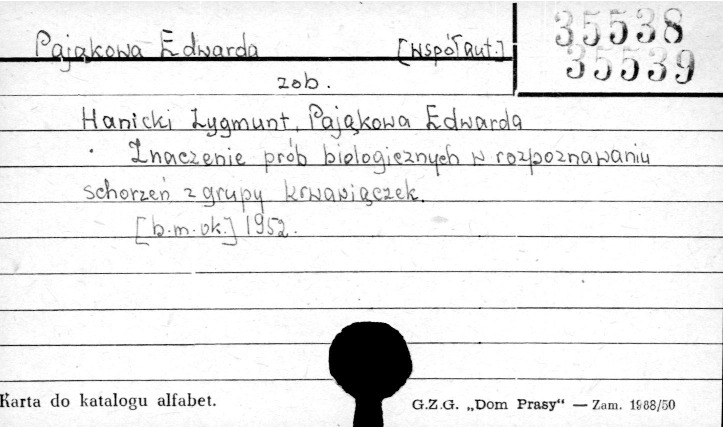 Pająkowa Edwarda [współaut.]
35538
35539
zob.
Hanicki Zygmunt, Pająkowa Edwarda
Znaczenie prób biologicznych w rozpoznawaniu
schorzeń z grupy krwawiączek.
[b.m.ok.] 1952.
Karta do katalogu alfabet.
G.Z.G. „Dom Prasy“ — Zam. 1988/50